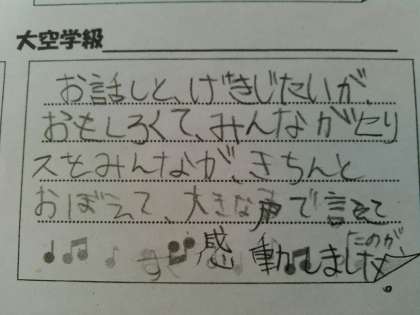 大空学級
お話しと、げきじたいが、
おもしろくて、みんながせり
ふをみんなが、きちんと
おぼえて、大きな声で言えて
たのが
す 感動しました